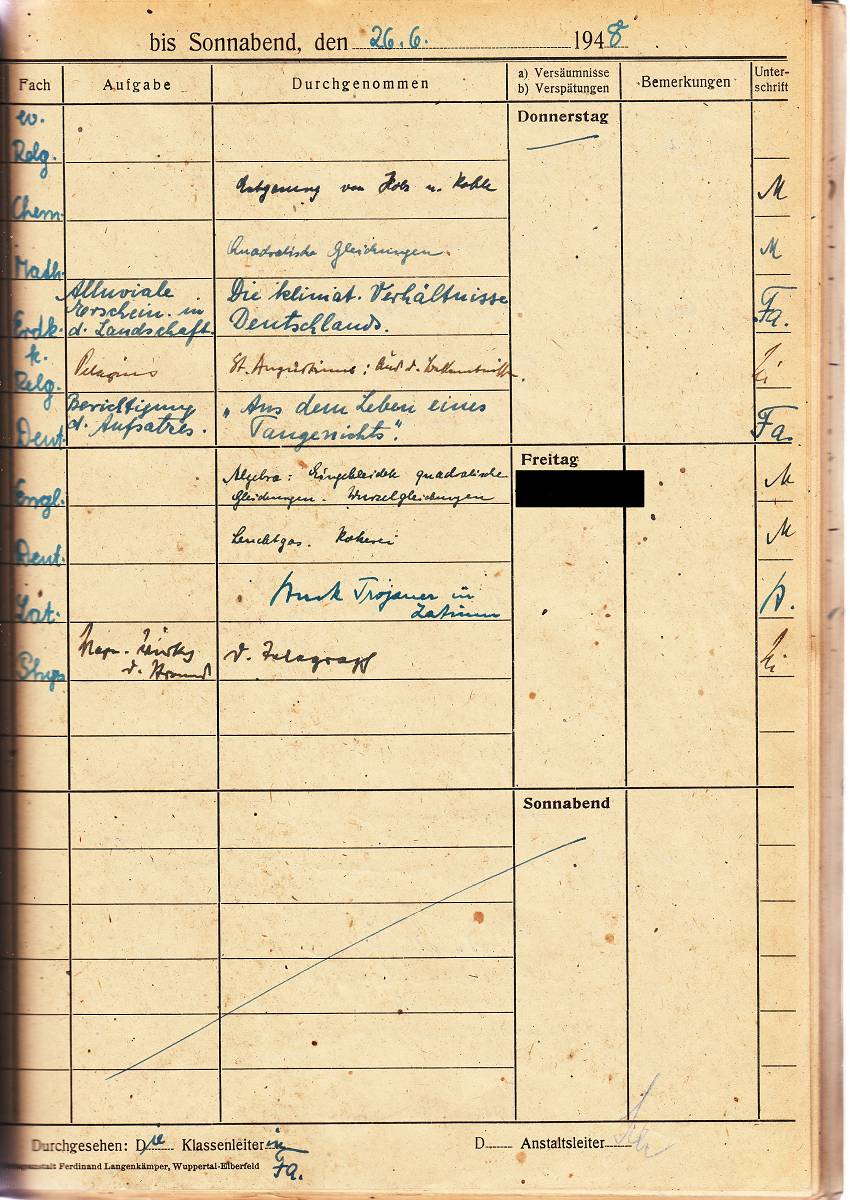 bis Sonnabend, den 26.6. 1948
Fach Aufgabe Durchgenommen a) Versäumnisse b) Verspätungen Bemerkungen Unter-schrift
Donnerstag
ev. Relg.
Chem. Entgasung von Holz u. Kohle M
Math. Quadratische Gleichungen. M
Erdk. Alluviale Erschein. in d. Landschaft. Die klimat. Verhältnisse Deutschlands. Fa.
k. Relg. Pelagius St. Augustinus: Aus d. Bekenntnissen. Ki
Deut. Berichtigung d. Aufsatzes. „Aus dem Leben eines Taugenichts“. Fa.
Freitag
Engl. Algebra: Eingekleidete quadratische Gleichungen. Wurzelgleichungen M
Deut. Leuchtgas. Kokerei M
Lat. Trojaner in Latium
Phys. d. Telegraph Ki
Sonnabend
Durchgesehen: Die Klassenleiterin Fa. D Anstaltsleiter
Ferdinand Langenkämper, Wuppertal-Elberfeld